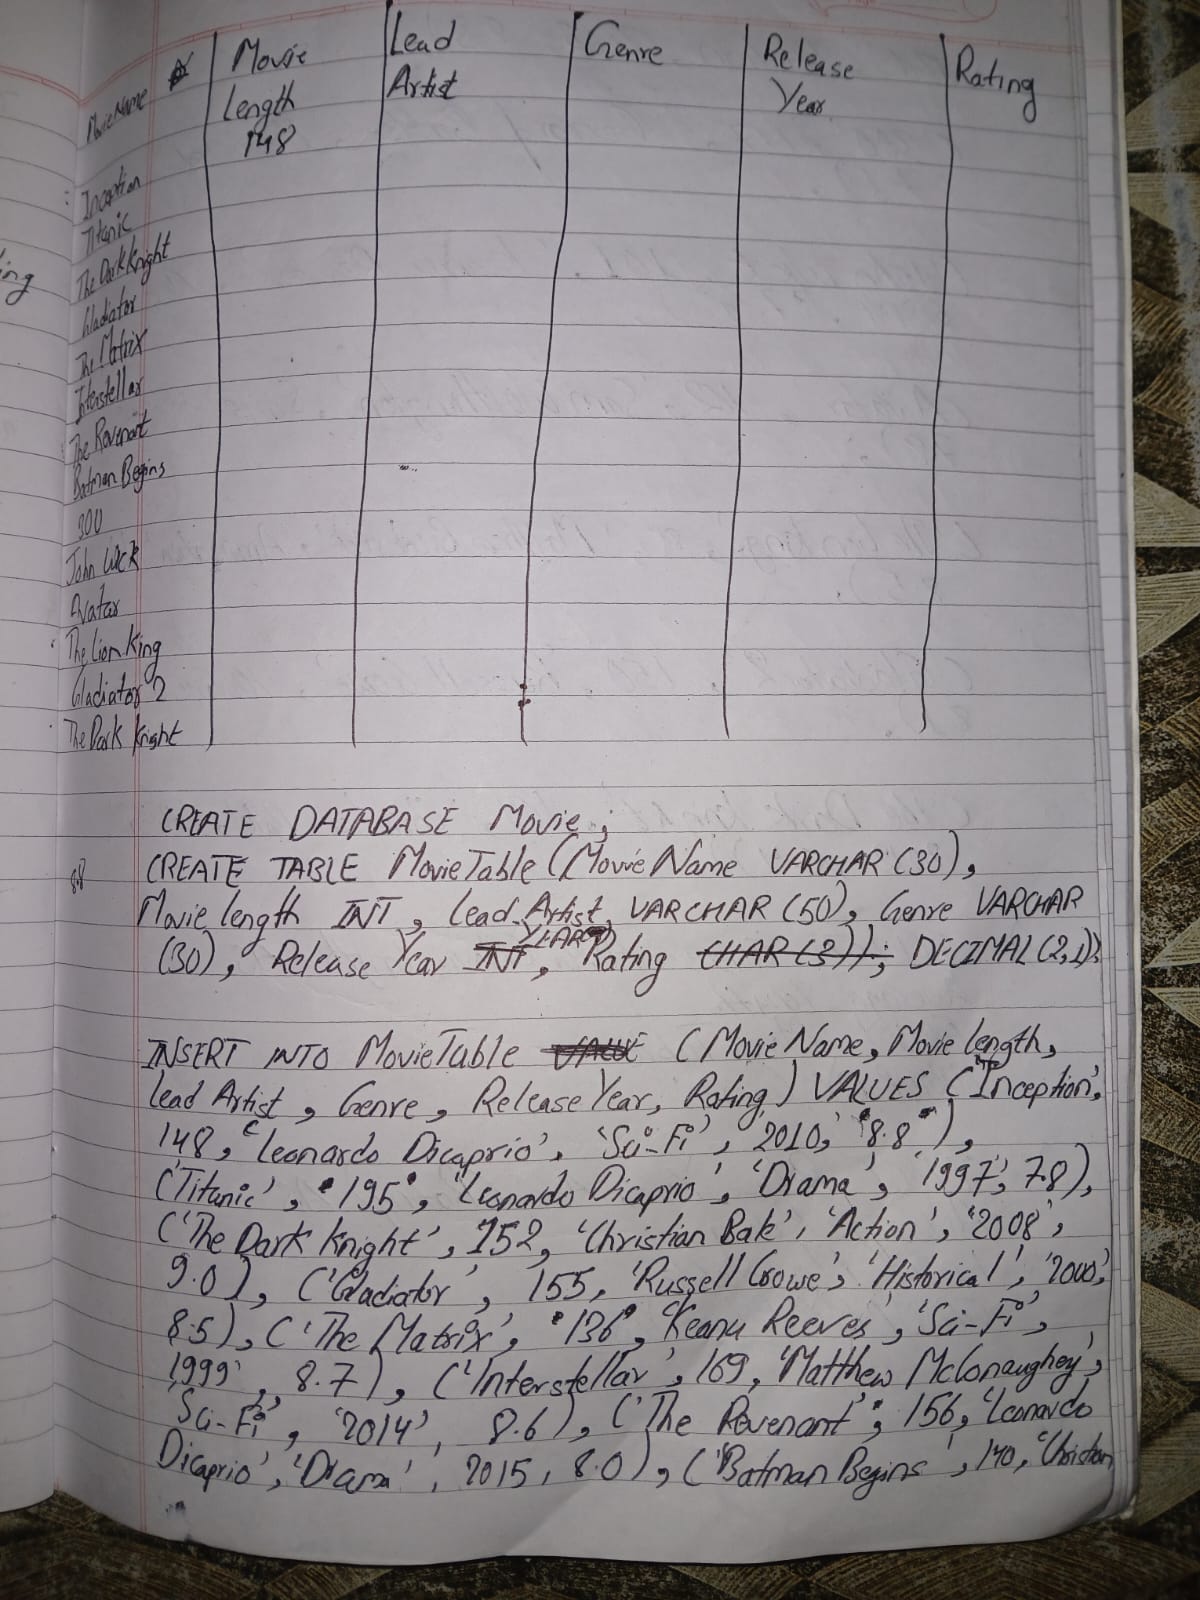 Movie Name
Movie Length
Lead Artist
Genre
Release Year
Rating
148
Inception
Titanic
The Dark Knight
Gladiator
The Matrix
Interstellar
The Revenant
Batman Begins
300
John Wick
Avatar
The Lion King
Gladiator 2
The Dark Knight
ing
CREATE DATABASE Movie;
8.8
CREATE TABLE MovieTable (Movie Name VARCHAR (30),
Movie length INT, lead Artist, VARCHAR (50), Genre VARCHAR
(30), Release Year INT YEAR, Rating CHAR (3)); DECIMAL (2,1));
INSERT INTO MovieTable VALUE (Movie Name, Movie length,
lead Artist, Genre, Release Year, Rating) VALUES ('Inception',
148, 'Leonardo Dicaprio', 'Sci-Fi', 2010, '8.8'),
('Titanic', 195, 'Leonardo Dicaprio', 'Drama', '1997', 7.8),
('The Dark Knight', 152, 'Christian Bale', 'Action', '2008',
9.0), ('Gladiator', 155, 'Russell Crowe', 'Historical', '2000',
8.5), ('The Matrix', '136', 'Keanu Reeves', 'Sci-Fi',
1999', 8.7), ('Interstellar', 169, 'Matthew McConaughey',
'Sci-Fi', '2014', 8.6), ('The Revenant', 156, 'Leonardo
Dicaprio', 'Drama', 2015, 8.0), ('Batman Begins', 140, 'Christian